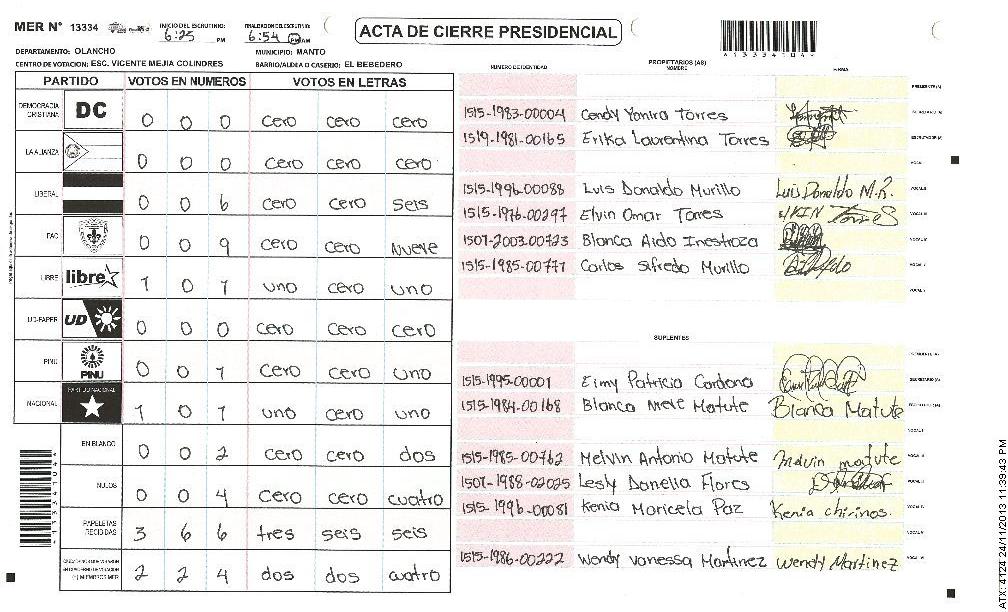 MER N° 13334 INICIO DEL ESCRUTINIO: 6:25 PM FINALIZACION DEL ESCRUTINIO: 6:54 PM AM
ACTA DE CIERRE PRESIDENCIAL
DEPARTAMENTO: OLANCHO MUNICIPIO: MANTO
CENTRO DE VOTACION: ESC. VICENTE MEJIA COLINDRES BARRIO/ALDEA O CASERIO: EL BEBEDERO
PARTIDO VOTOS EN NUMEROS VOTOS EN LETRAS
DEMOCRACIA CRISTIANA DC 0 0 0 cero cero cero
LA ALIANZA 0 0 0 cero cero cero
LIBERAL 0 0 6 cero cero seis
PAC 0 0 9 cero cero nueve
LIBRE libre 1 0 1 uno cero uno
UD-FAPER UD 0 0 0 cero cero cero
PINU PINU 0 0 1 cero cero uno
NACIONAL PARTIDO NACIONAL 1 0 1 uno cero uno
EN BLANCO 0 0 2 cero cero dos
NULOS 0 0 4 cero cero cuatro
PAPELETAS RECIBIDAS 3 6 6 tres seis seis
2 2 4 dos dos cuatro
NUMERO DE IDENTIDAD PROPIETARIOS (AS) NOMBRE FIRMA
PRESIDENTE(A)
1515-1983-00004 Cendy Yanira Torres SECRETARIO(A)
1519-1981-00165 Erika Laurentina Torres ESCRUTADOR(A)
VOCAL I
1515-1996-00088 Luis Donaldo Murillo Luis Donaldo M.R. VOCAL II
1515-1976-00297 Elvin Omar Torres ElVIN Torres VOCAL III
1507-2003-00723 Blanca Aido Inestroza VOCAL IV
1515-1985-00777 Carlos Sifredo Murillo VOCAL V
SUPLENTES
PRESIDENTE(A)
1515-1995-00001 Eimy Patricia Cardona SECRETARIO(A)
1515-1984-00168 Blanca Nieve Matute Blanca Matute
VOCAL I
1515-1985-00762 Melvin Antonio Matute melvin matute VOCAL II
1507-1988-02025 Lesly Danelia Flores VOCAL III
1515-1996-00081 Kenia Maricela Paz Kenia chirinos. VOCAL IV
VOCAL V
1515-1986-00222 Wendy Vanessa Martinez Wendy Martinez
ATX: 4124 24/11/2013 11:39:43 PM